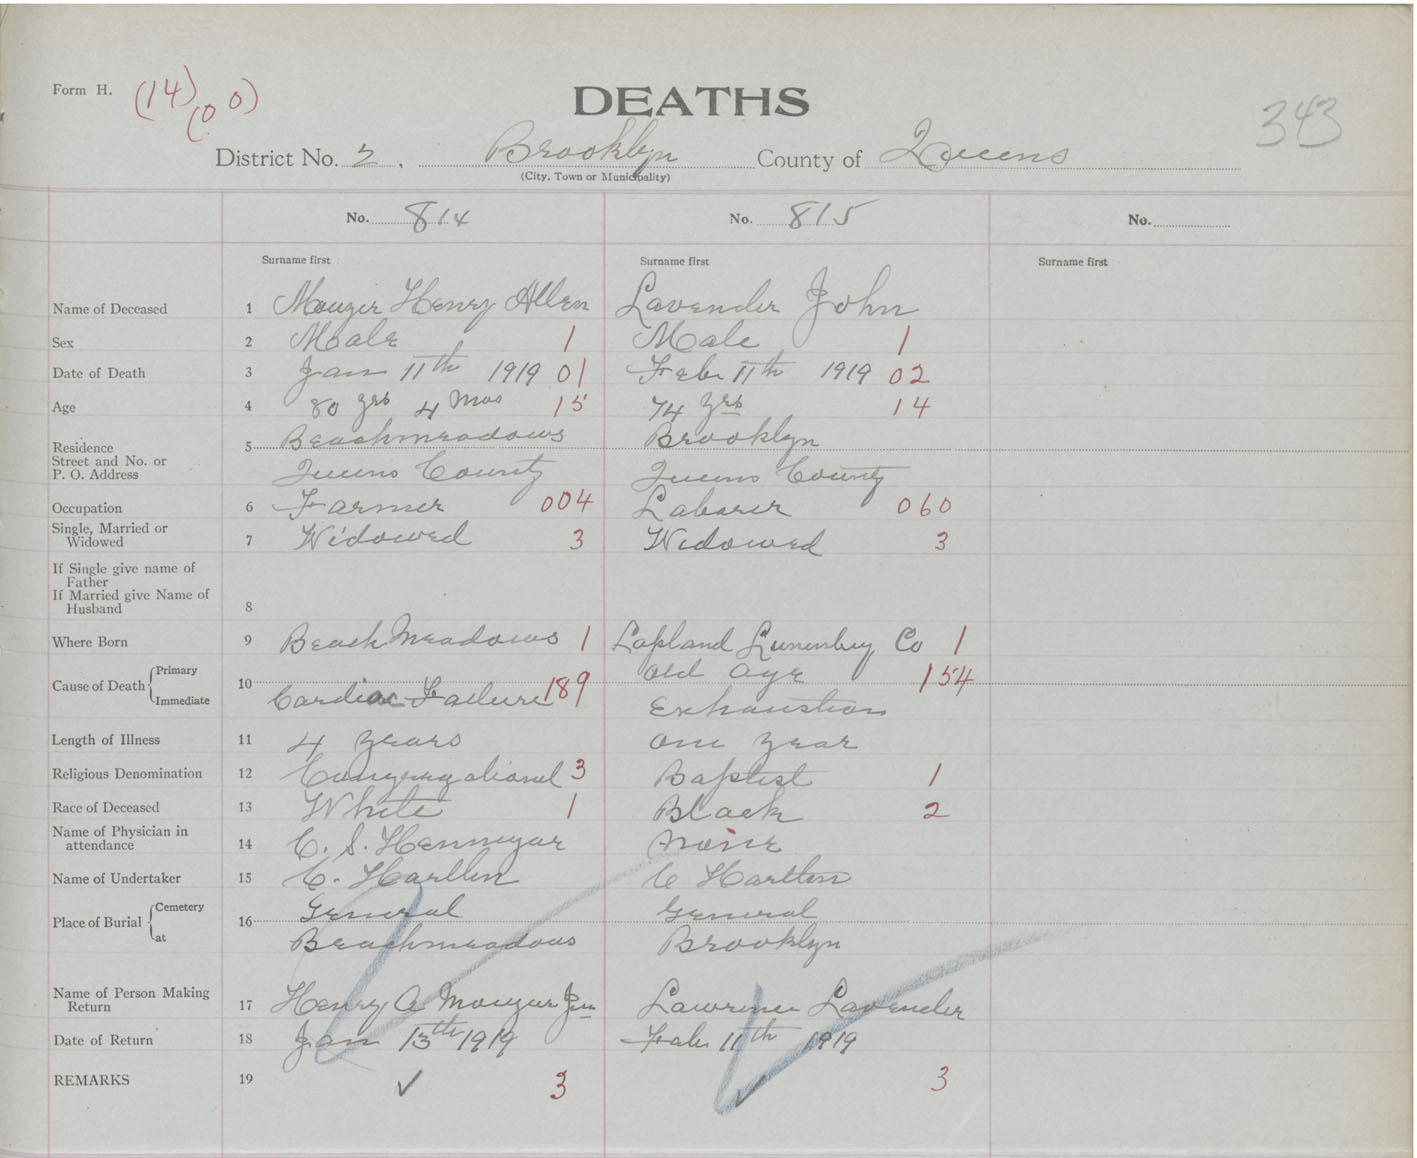 Form H. (14) (00)
DEATHS
343
District No. 2, Brooklyn County of Queens
(City, Town or Municipality)
No. 814 No. 815 No.
Surname first Surname first Surname first
Name of Deceased 1 Mouzer Henry Allen Lavender John
Sex 2 Male 1 Male 1
Date of Death 3 Jan 11th 1919 01 Feb 11th 1919 02
Age 4 80 yrs 4 Mos 15 74 yrs 14
Residence 5 Beachmeadows Brooklyn
Street and No. or
P. O. Address Queens County Queens County
Occupation 6 Farmer 004 Laborer 060
Single, Married or
Widowed 7 Widowed 3 Widowed 3
If Single give name of
Father
If Married give Name of
Husband 8
Where Born 9 Beach Meadows 1 Lapland Lunenburg Co 1
Cause of Death Primary 10 Old Age 154
Immediate Cardiac Failure 189 Exhaustion
Length of Illness 11 4 years one year
Religious Denomination 12 Congregational 3 Baptist 1
Race of Deceased 13 White 1 Black 2
Name of Physician in
attendance 14 C. S. Hennigar None
Name of Undertaker 15 C. Hartlen C Hartlen
Place of Burial Cemetery 16 General General
at Beachmeadows Brooklyn
Name of Person Making
Return 17 Henry A Mouzer Jun Lawrence Lavender
Date of Return 18 Jan 13th 1919 Feb 11th 1919
REMARKS 19 ✓ 3 ✓ 3